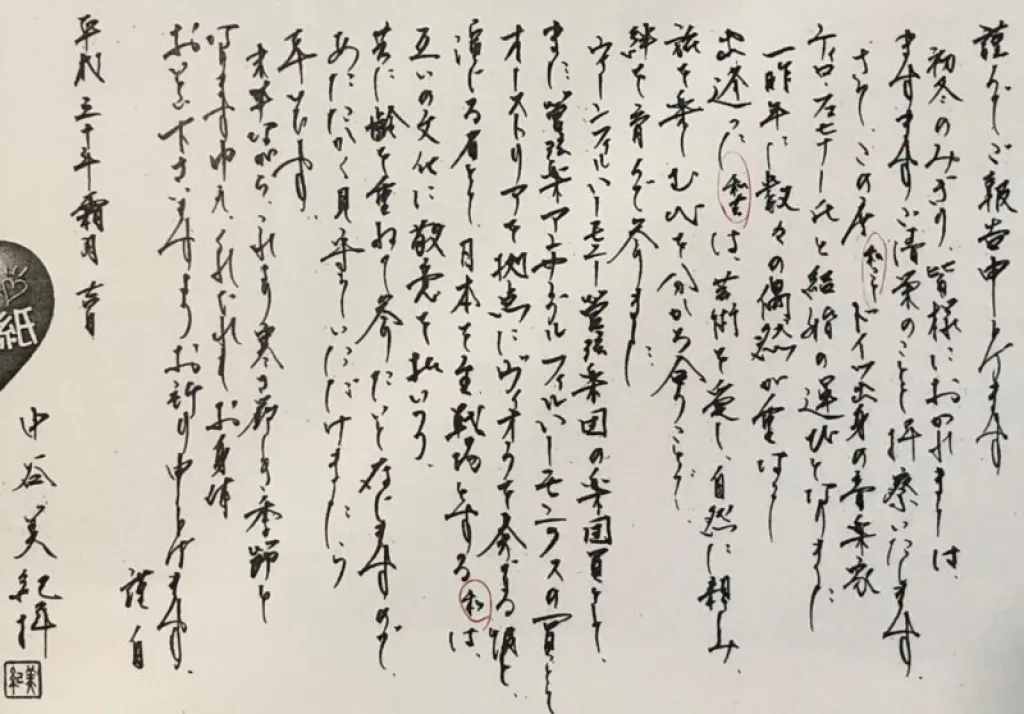 謹んでご報告申し上げます
初冬のみぎり 皆様におかれましては、
ますますご清栄のことと拝察いたします
さて、この度 私こと ドイツ出身の音楽家
ティロ・フェヒナー氏と結婚の運びとなりました
一昨年に数々の偶然が重なり
出逢った 私共は、芸術を愛し、自然に親しみ、
旅を楽しむ心を分かち合うことで、
絆を育んで参りました
ウィーンフィルハーモニー管弦楽団の楽団員として、
また、管弦楽アンサンブル フィルハーモニクスの一員として
オーストリアを拠点にヴィオラを奏でる彼と、
演じる者として日本を主戦場とする 私は、
互いの文化に敬意を払いつつ、
共に齢を重ねて参りたいと存じますので
あたたかく見守っていただけましたら
幸いです。
末筆ながら、これから寒さ厳しき季節と
なります ゆえ、くれぐれもお身体
おいとい下さいますよう お祈り申し上げます。
謹白
平成三十年霜月 吉日
中谷美紀拝
美紀
紙